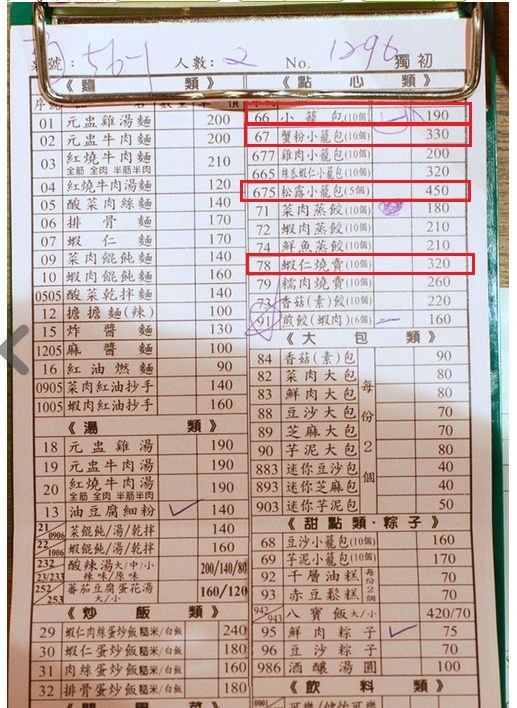 號: 56-1 人數: 2 No. 1296 獨初
《麵 類》
01 元盅雞湯麵 200
02 元盅牛肉麵 200
03 紅燒牛肉麵 全筋 全肉 半筋半肉 210
04 紅燒牛肉湯麵 120
05 酸菜肉絲麵 140
06 排骨麵 170
07 蝦仁麵 170
09 菜肉餛飩麵 140
10 蝦肉餛飩麵 160
0505 酸菜乾拌麵 140
12 擔擔麵(辣) 100
15 炸醬麵 130
1205 麻醬麵 100
16 紅油燃麵 90
0905 菜肉紅油抄手 140
1005 蝦肉紅油抄手 160
《湯 類》
18 元盅雞湯 190
19 元盅牛肉湯 190
20 紅燒牛肉湯 全筋 全肉 半筋半肉 190
13 油豆腐細粉 140
21/0906 菜餛飩/湯/乾拌 140
22/1006 蝦餛飩/湯/乾拌 160
232/23/233 酸辣湯大/中/小 辣味/原味 200/140/80
252/253 蕃茄豆腐蛋花湯 大/小 160/120
《炒飯類》
29 蝦仁肉絲蛋炒飯 糙米/白飯 240
30 蝦仁蛋炒飯 糙米/白飯 180
31 肉絲蛋炒飯 糙米/白飯 160
32 排骨蛋炒飯 糙米/白飯 180
《點心類》
66 小籠包(10個) 190
67 蟹粉小籠包(10個) 330
677 雞肉小籠包(10個) 200
665 絲瓜蝦仁小籠包(10個) 320
675 松露小籠包(5個) 450
71 菜肉蒸餃(10個) 180
72 蝦肉蒸餃(10個) 210
74 鮮魚蒸餃(10個) 210
78 蝦仁燒賣(10個) 320
79 糯肉燒賣(10個) 260
73 香菇(素)餃(10個) 220
91 煎餃(蝦肉)(6個) 160
《大包類》
每份2個
84 香菇(素)包 90
82 菜肉大包 80
83 鮮肉大包 80
88 豆沙大包 70
89 芝麻大包 70
90 芋泥大包 80
883 迷你豆沙包 40
893 迷你芝麻包 40
903 迷你芋泥包 50
《甜點類·粽子》
68 豆沙小籠包(10個) 160
69 芋泥小籠包(10個) 170
92 千層油糕 每份2個 70
93 赤豆鬆糕 70
942/943 八寶飯大/小 420/70
95 鮮肉粽子 75
96 豆沙粽子 70
986 酒釀湯圓 100
《飲料類》